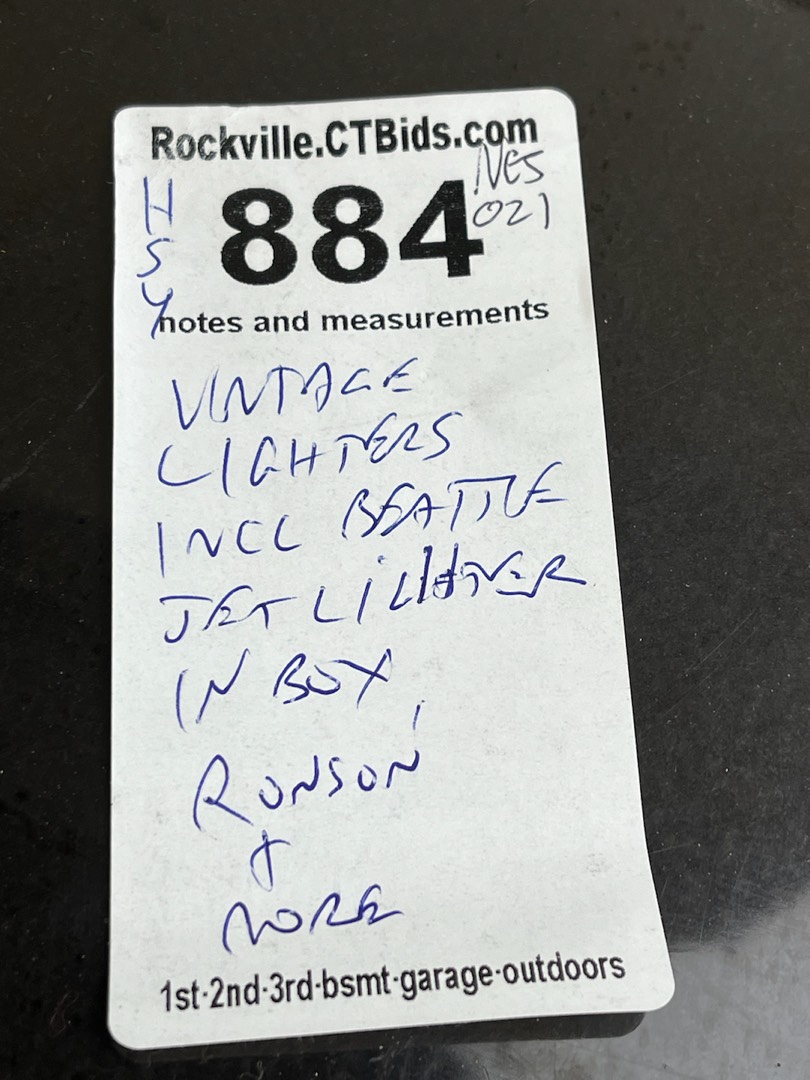 Rockville.CTBids.com
NES
021
884
H
S
Y
notes and measurements
VINTAGE
LIGHTERS
INCL BEATTIE
JET LIGHTER
IN BOX,
RONSON
+
MORE
1st-2nd-3rd-bsmt-garage-outdoors